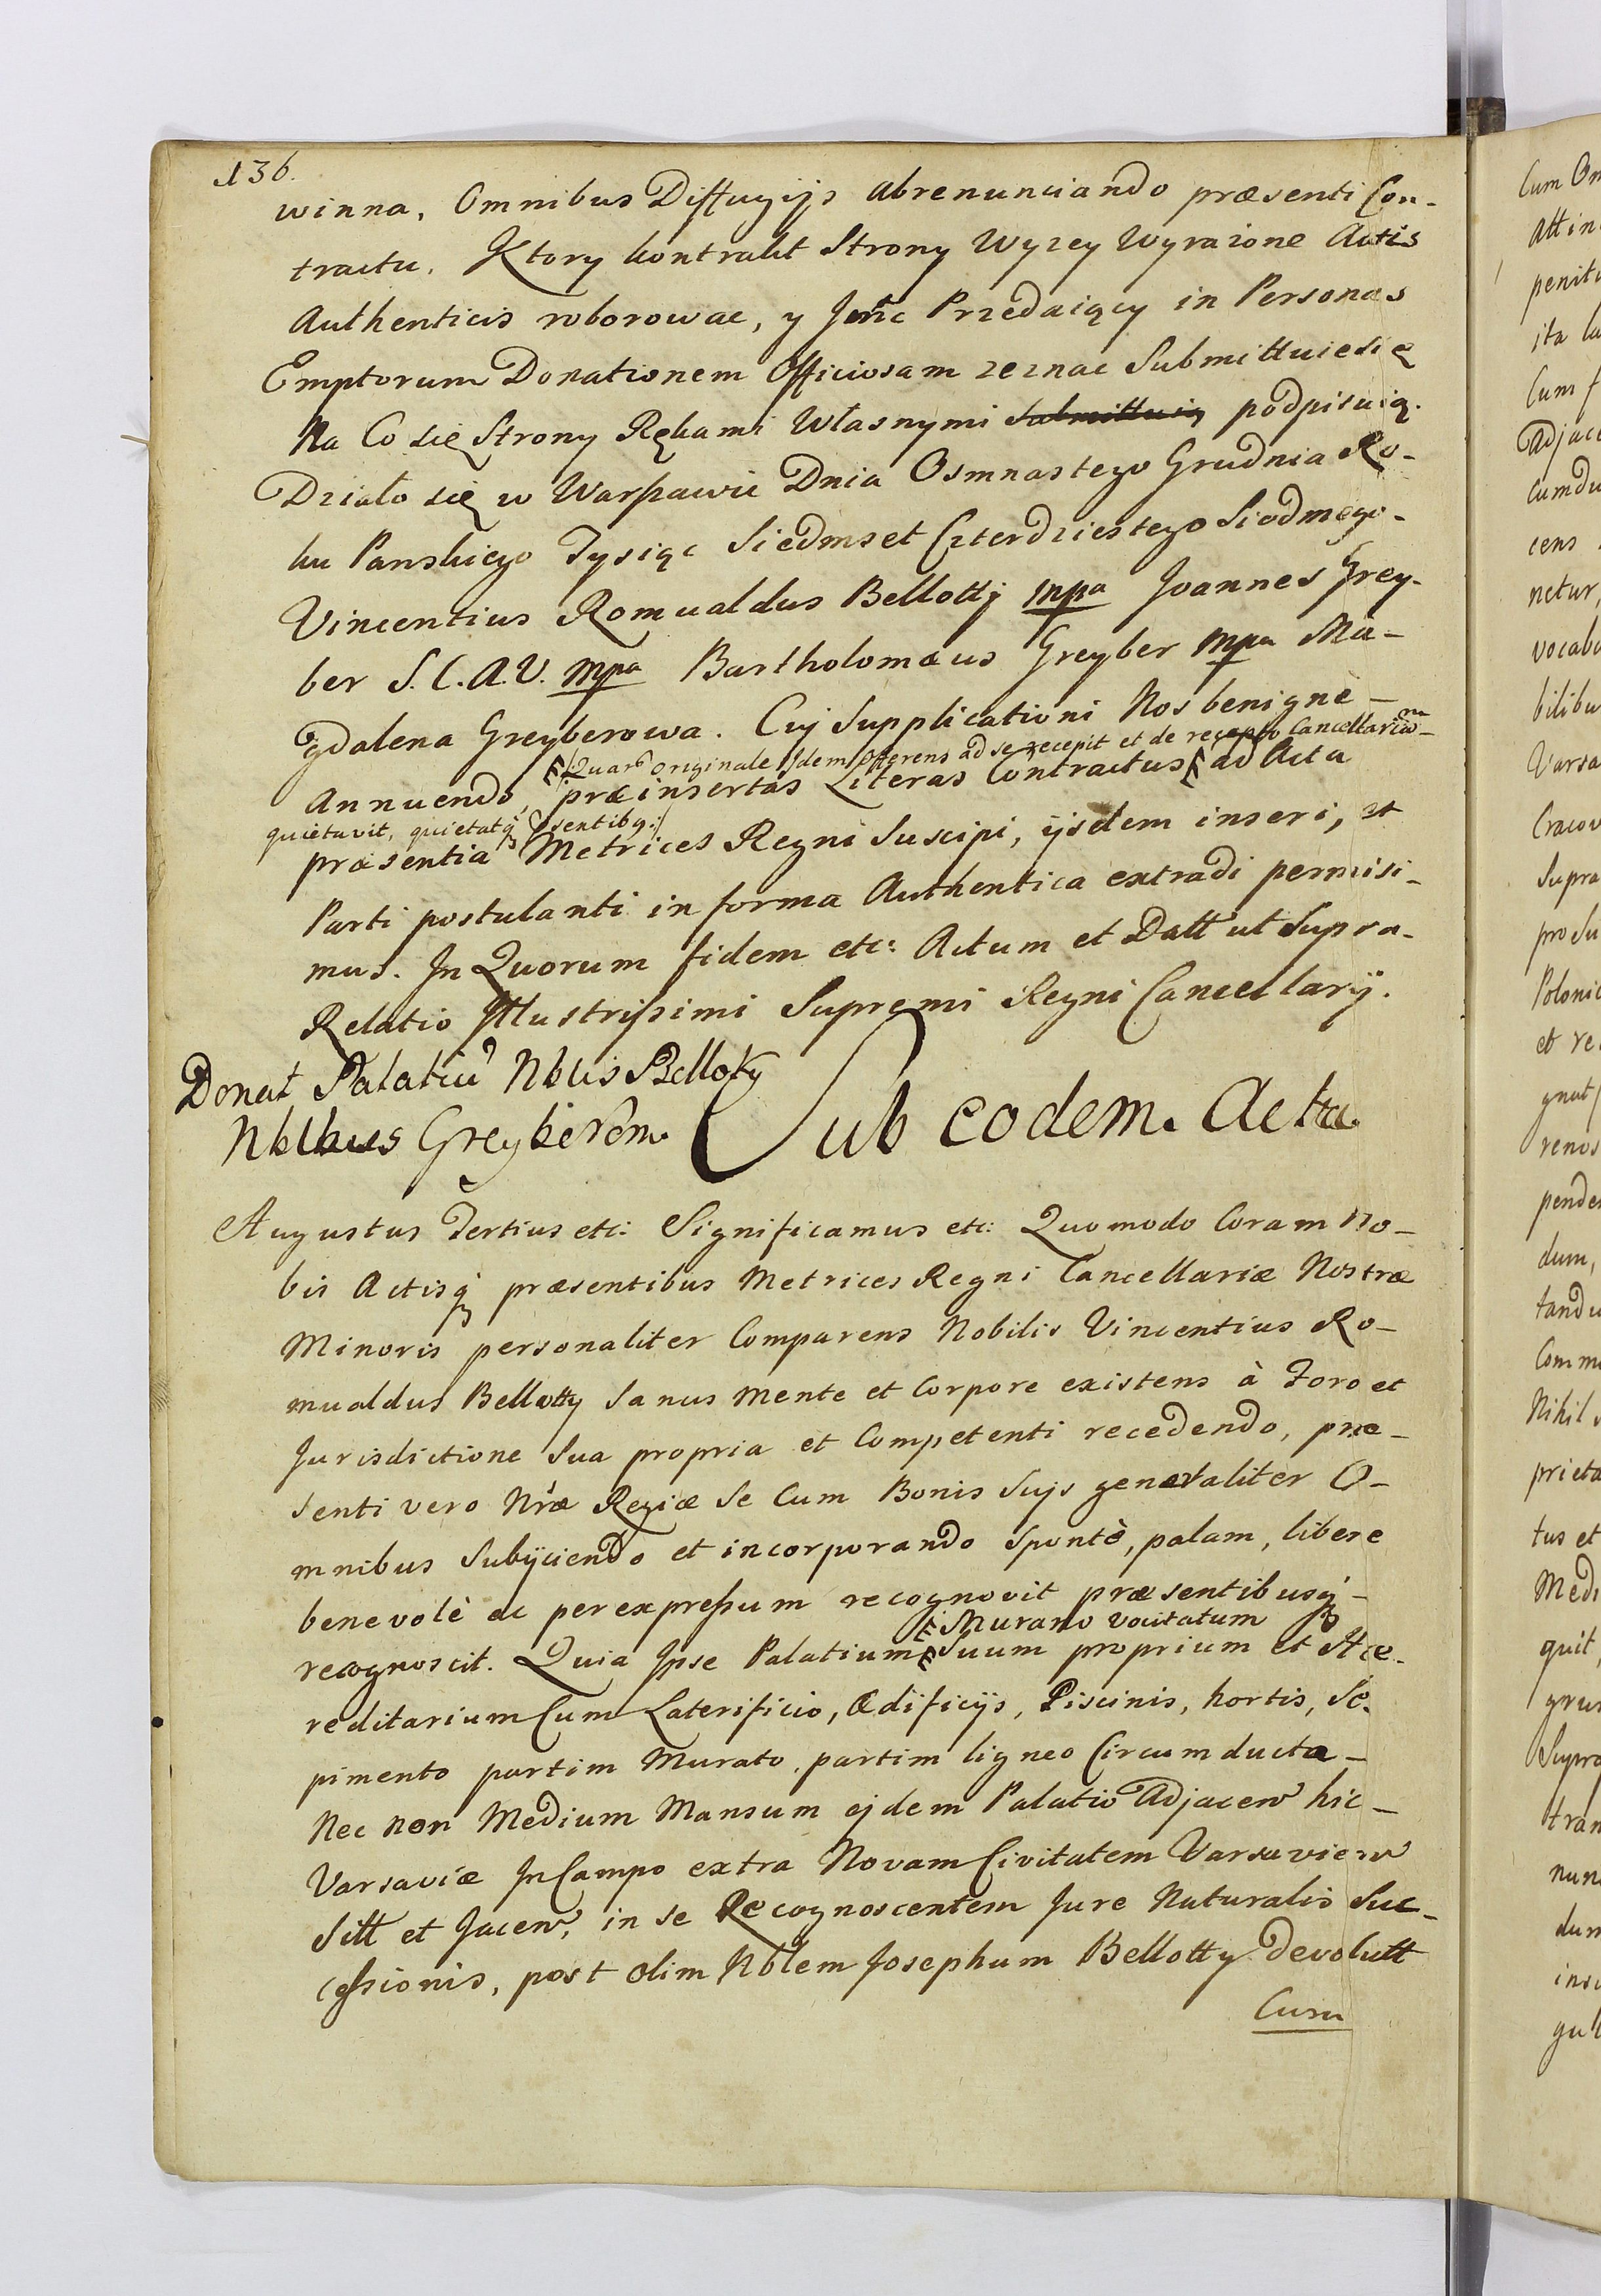 136.
winna, Omnibus Diffugijs abrenunciando præsenti Con-
tractu. Ktory kontrakt Strony Wyzey Wyrazone Actis
Authenticis roborowac, y Jmc Przedaiący in Personas
Emptorum Donationem Officiosam zeznac Submittuie się
Na Co się Strony Rękami Własnymi Submittuią podpisuią.
Działo się w Warszawie Dnia Osmnastego Grudnia Ro-
ku Panskiego Tysiąc Siedmset Czterdziestego Siodmego-
Vincentius Romualdus Bellotty mpa Joannes Grey-
ber S. C. A. V. mpa Bartholomæus Greyber mpa Ma-
gdalena Greyberowa. Cuj Supplicationi Nos benigne-
(Quarũ originale Idem Offerens ad se recepit et de recepto Cancellariam
Annuendo, præinsertas Literas Contractus ad Acta
quietavit, quietatq̃ pñsentibq:)
præsentia Metrices Regni Suscipi, ijsdem inseri, et
Parti postulanti in forma Authentica extradi permisi-
mus. In Quorum fidem etc: Actum et Datt ut Supra-
Relatio Illustrissimi Supremi Regni Cancellarij.
Donat Palatiũ Nblis Bellotty
Nblbus Greyberom.
Sub eodem. Actu.
Augustus Tertius etc: Significamus etc: Quomodo Coram No-
bis Actisq̃ præsentibus Metrices Regni Cancellariæ Nostræ
Minoris personaliter Comparens Nobilis Vincentius Ro-
mualdus Bellotty Sanus Mente et Corpore existens à Foro et
Jurisdictione Sua propria et Competenti recedendo, præ-
senti vero Nræ Regiæ Se Cum Bonis Suis generaliter O-
mnibus Subijciendo et incorporando Spontè, palam, libere
benevolè ac per expressum recognovit præsentibusq̃-
Murano vocitatum
recognoscit. Quia Ipse Palatium Suum proprium et Hæ-
reditarium Cum Laterificio, Ædificijs, Piscinis, hortis, Se-
pimento partim Murato, partim ligneo Circumducta-
Nec non Medium Mansum ejdem Palatio Adjacen hic-
Varsaviæ In Campo extra Novam Civitatem Varsavien
Sitt et Jacen, in se Recognoscentem Jure Naturalis Suc-
cessionis, post olim Nblem Josephum Bellotty devolutt
Cum